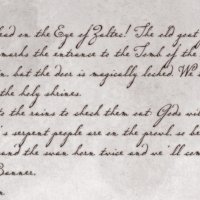 ead on the Eye of Zaltec! The old goat
marks the entrance to the Tomb of the
n, but the door is magically locked. We
the holy shrines.
to the ruins to check them out. Gods wi
's serpent people are on the prowl, so be
und the swan horn twice and we'll com
Banner.